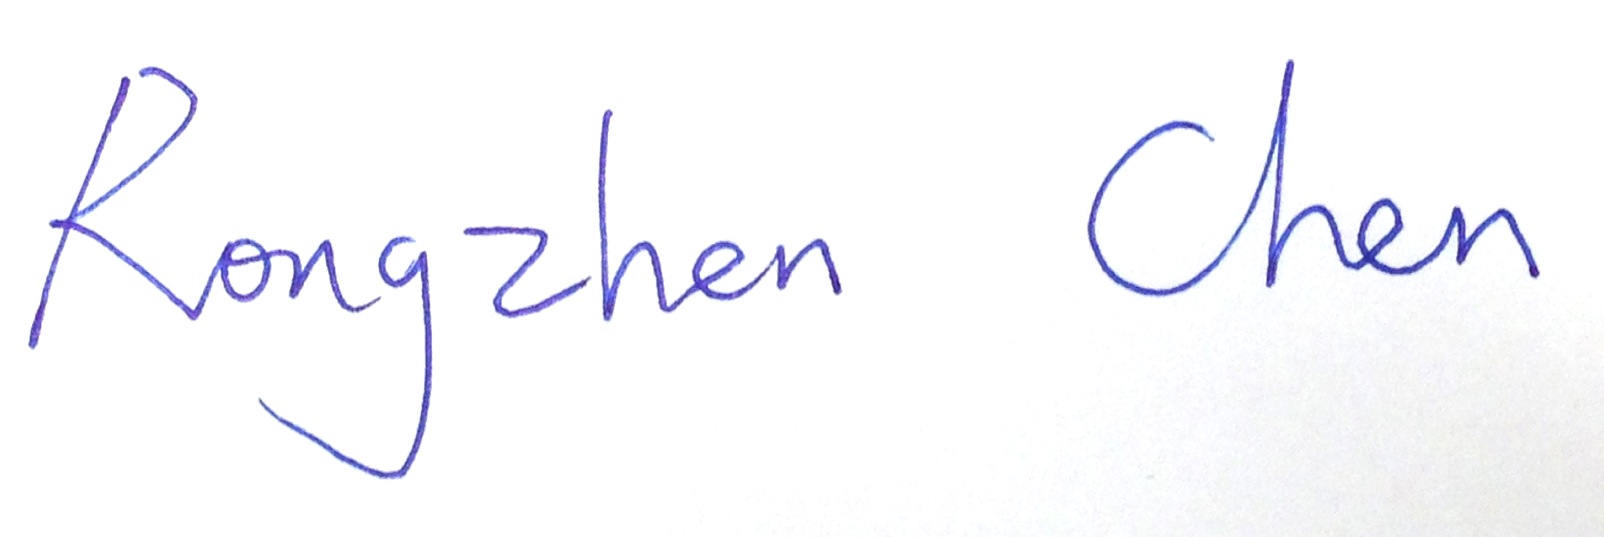 Rongzhen Chen